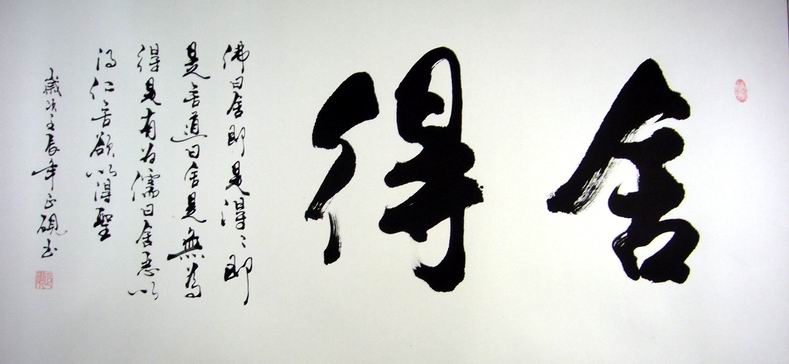 舍得
佛曰舍即是得々即
是舍道曰舍是無為
得是有为儒曰舍恶以
得仁舍欲以得聖
歲次壬辰年正硯书